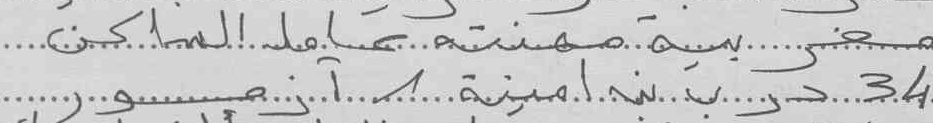 مغربية مهنته عامل الساكن
34 درب لامينة آزمور